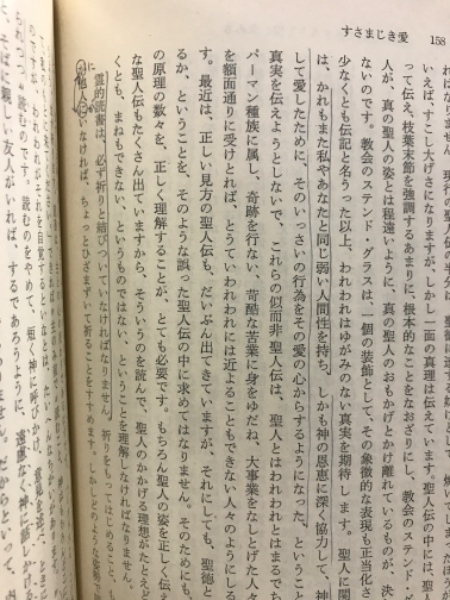 すさまじき愛 158
いえば、すこし大げさになりますが、しかし一面の真理は伝えています。聖人伝の中には、
って伝え、枝葉末節を強調するあまりに、根本的なことをなおざりにし、教会のステンド・グ
人が、真の聖人の姿とは程遠いように、真の聖人のおもかげとかけ離れているものが、決
ないのです。教会のステンド・グラスは、一個の装飾として、その象徴的な表現も正当化さ
少なくとも伝記と名うった以上、われわれはゆがみのない真実を期待します。聖人に関
は、かれもまた私やあなたと同じ弱い人間性を持ち、しかも神の恩恵に深く協力して、神
して愛したために、そのいっさいの行為をその愛の心からするようになった、ということ
真実を伝えようとしないで、これらの似而非聖人伝は、聖人とはわれわれとはまるでち
パーマン種族に属し、奇跡を行ない、苛酷な苦業に身をゆだね、大事業をなしとげた人々
を額面通りに受けとれば、とうていわれわれには近よることもできない人々のようにしる
す。最近は、正しい見方の聖人伝も、だいぶん出てきていますが、それにしても、聖徳と
るか、ということを、そのような誤った聖人伝の中に求めてはなりません。そのためにも、
の原理の数々を、正しく理解することが、とても必要です。もちろん聖人の姿を正しく伝え
な聖人伝もたくさん出ていますから、そういうのを読んで、聖人のかかげる理想がたとえど
くとも、まねもできない、というものではない、ということを理解しなければなりません。
霊的読書は、必ず祈りと結びついていなければなりません。祈りをもってはじめること、
いなければ、ちょっとひざまずいて祈ることをすすめます。しかしどのような姿勢で